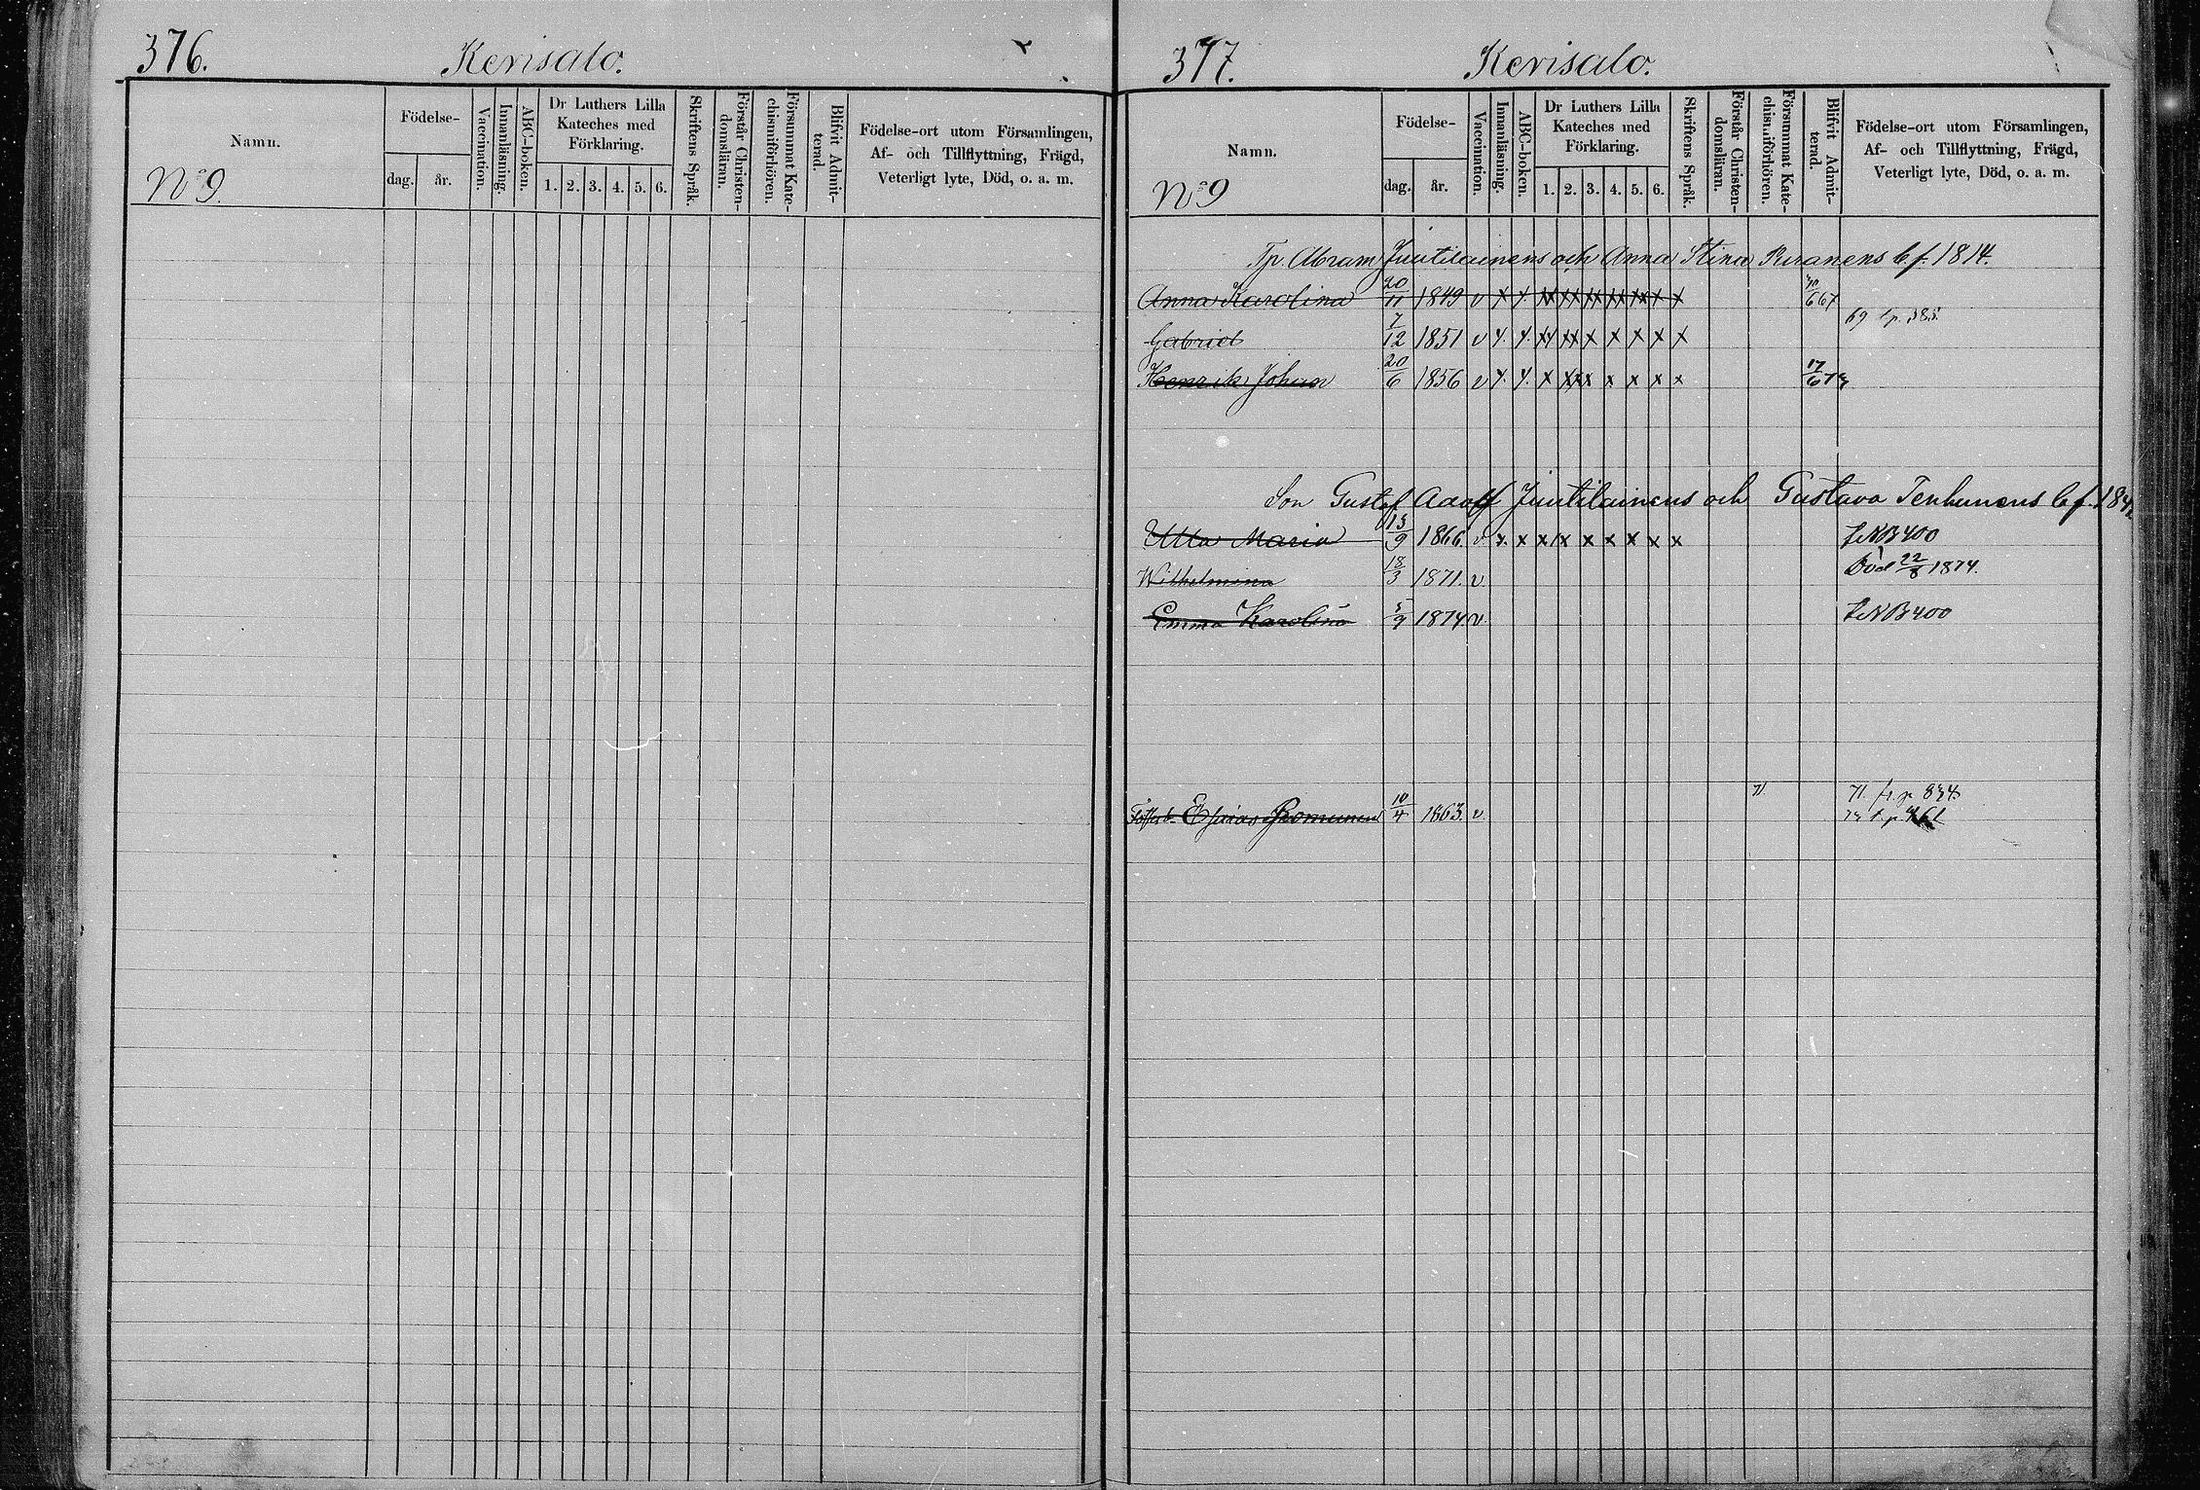 376. Kerisalo.
Namn.
Födelse-
dag. år.
Vaccination.
Innanläsning.
ABC-boken.
Dr Luthers Lilla Kateches med Förklaring.
1. 2. 3. 4. 5. 6.
Skriftens Språk.
Förstår Christendomsläran.
Försummat Katechismiförhören.
Blifvit Admitterad.
Födelse-ort utom Församlingen,
Af- och Tillflyttning, Frägd,
Veterligt lyte, Död, o. a. m.
No 9.
377. Kerisalo.
Namn.
Födelse-
dag. år.
Vaccination.
Innanläsning.
ABC-boken.
Dr Luthers Lilla Kateches med Förklaring.
1. 2. 3. 4. 5. 6.
Skriftens Språk.
Förstår Christendomsläran.
Försummat Katechismiförhören.
Blifvit Admitterad.
Födelse-ort utom Församlingen,
Af- och Tillflyttning, Frägd,
Veterligt lyte, Död, o. a. m.
No 9
Abram Juutilainens och Anna Stina Puranens b. f. 1814.
Anna Karolina 20/11 1849 v x x xx xx xx xx xx x x
69 t.p. 383.
Gabriel 7/12 1851 v x x xx xx x x x x x
Henrik Johan 20/6 1856 v x x x xx x x x x x 17/6 73
Son Gustaf Adolf Juutilainens och Gustava Tenhunens b. f.
Ulla Maria 13/9 1866. v x. x x x x x x x x NB 400
Wilhelmina 18/3 1871. v Död 22/8 1874.
Emma Karolina 5/9 1874 v NB 400
71 71. fr. p. 834
10/4 1863. v